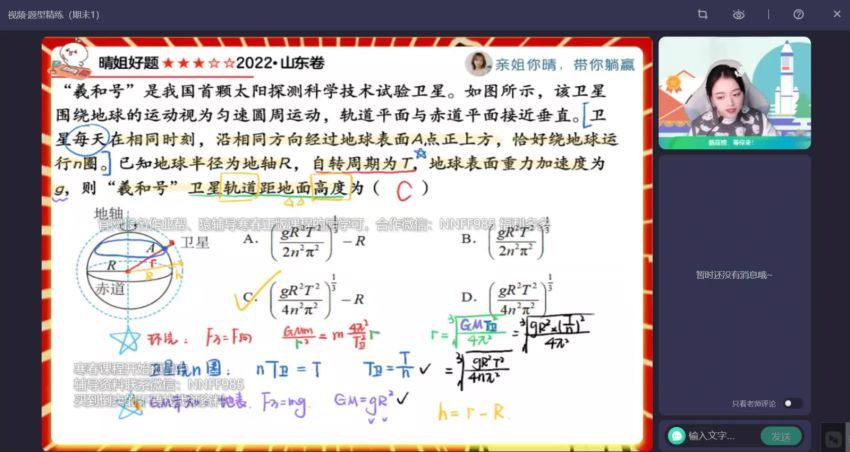 视频·题型精练（期末1）
晴姐好题 ★★★☆☆ 2022·山东卷
亲姐你晴，带你躺赢
“羲和号”是我国首颗太阳探测科学技术试验卫星。如图所示，该卫星
围绕地球的运动视为匀速圆周运动，轨道平面与赤道平面接近垂直。[卫
星每天在相同时刻，沿相同方向经过地球表面A点正上方，恰好绕地球运
行n圈。]已知地球半径为地轴R，自转周期为T，地球表面重力加速度为
g，则“羲和号”卫星轨道距地面高度为（ C ）
地轴
卫星
A
R
r
R
h
赤道
A. (gR²T²/2n²π²)^{1/3} − R
B. (gR²T²/2n²π²)^{1/3}
C. (gR²T²/4n²π²)^{1/3} − R
D. (gR²T²/4n²π²)^{1/3}
NNFF985
环绕: F万=F向 GMm/r² = m 4π²/T卫² r
r = ∛(GMT卫²/4π²) = ∛(gR²×(T/n)²/4π²)
n圈: nT卫 = T T卫 = T/n ✓
= ∛(gR²T²/4nπ²)
地表. F万=mg. GM=gR² ✓
h = r − R.
寒春课程开始
辅导资料联系微信：NNFF985
暂时还没有消息哦~
只看老师评论
输入文字...
发送